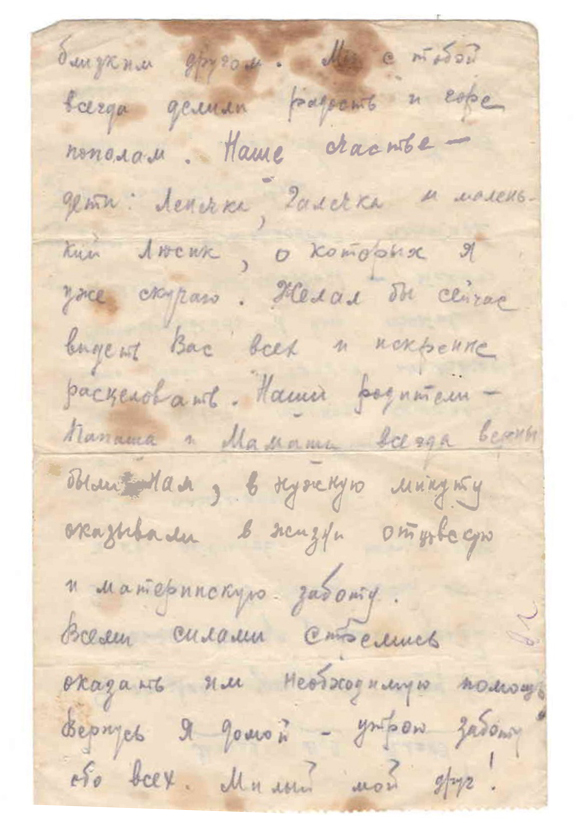 близким другом. Мы с тобой
всегда делили радость и горе
пополам. Наше счастье —
дети: Ленечка, Галечка и малень-
кий Люсик, о которых я
уже скучаю. Желал бы сейчас
видеть Вас всех и искренне
расцеловать. Наши родители —
Папаша и Мамаша всегда верны
были Нам, в нужную минуту
оказывали в жизни отцовскую
и материнскую заботу.
Всеми силами стремись
оказать им необходимую помощь
Вернусь я домой – утрою заботу
обо всех. Милый мой друг!